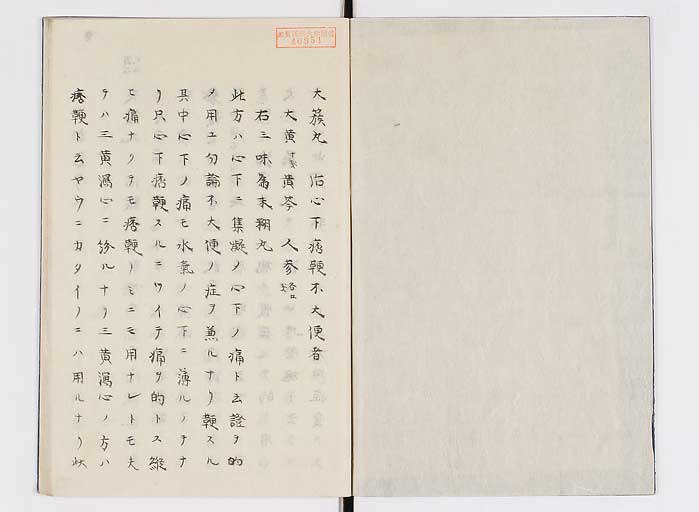 大簇丸 治心下痞鞕不大便者
大黄 黄芩 人参
右三味為末糊丸
此方ハ心下ニ集凝ノ心下ノ痛ト云證ヲ的
メ用ユ勿論不大便ノ症ヲ兼ルナリ鞕スル
其中心下ノ痛モ水氣ノ心下ニ薄ルノテナ
リ只心下痞鞕スルニツイテ痛ヲ的トス縦
ヒ痛ナクテモ痞鞕ノミニモ用ナレトモ夫
テハ三黄瀉心ニ紛ルナリ三黄瀉心ノ方ハ
痞鞕ト云ヤウニカタイノニハ用ルナリ